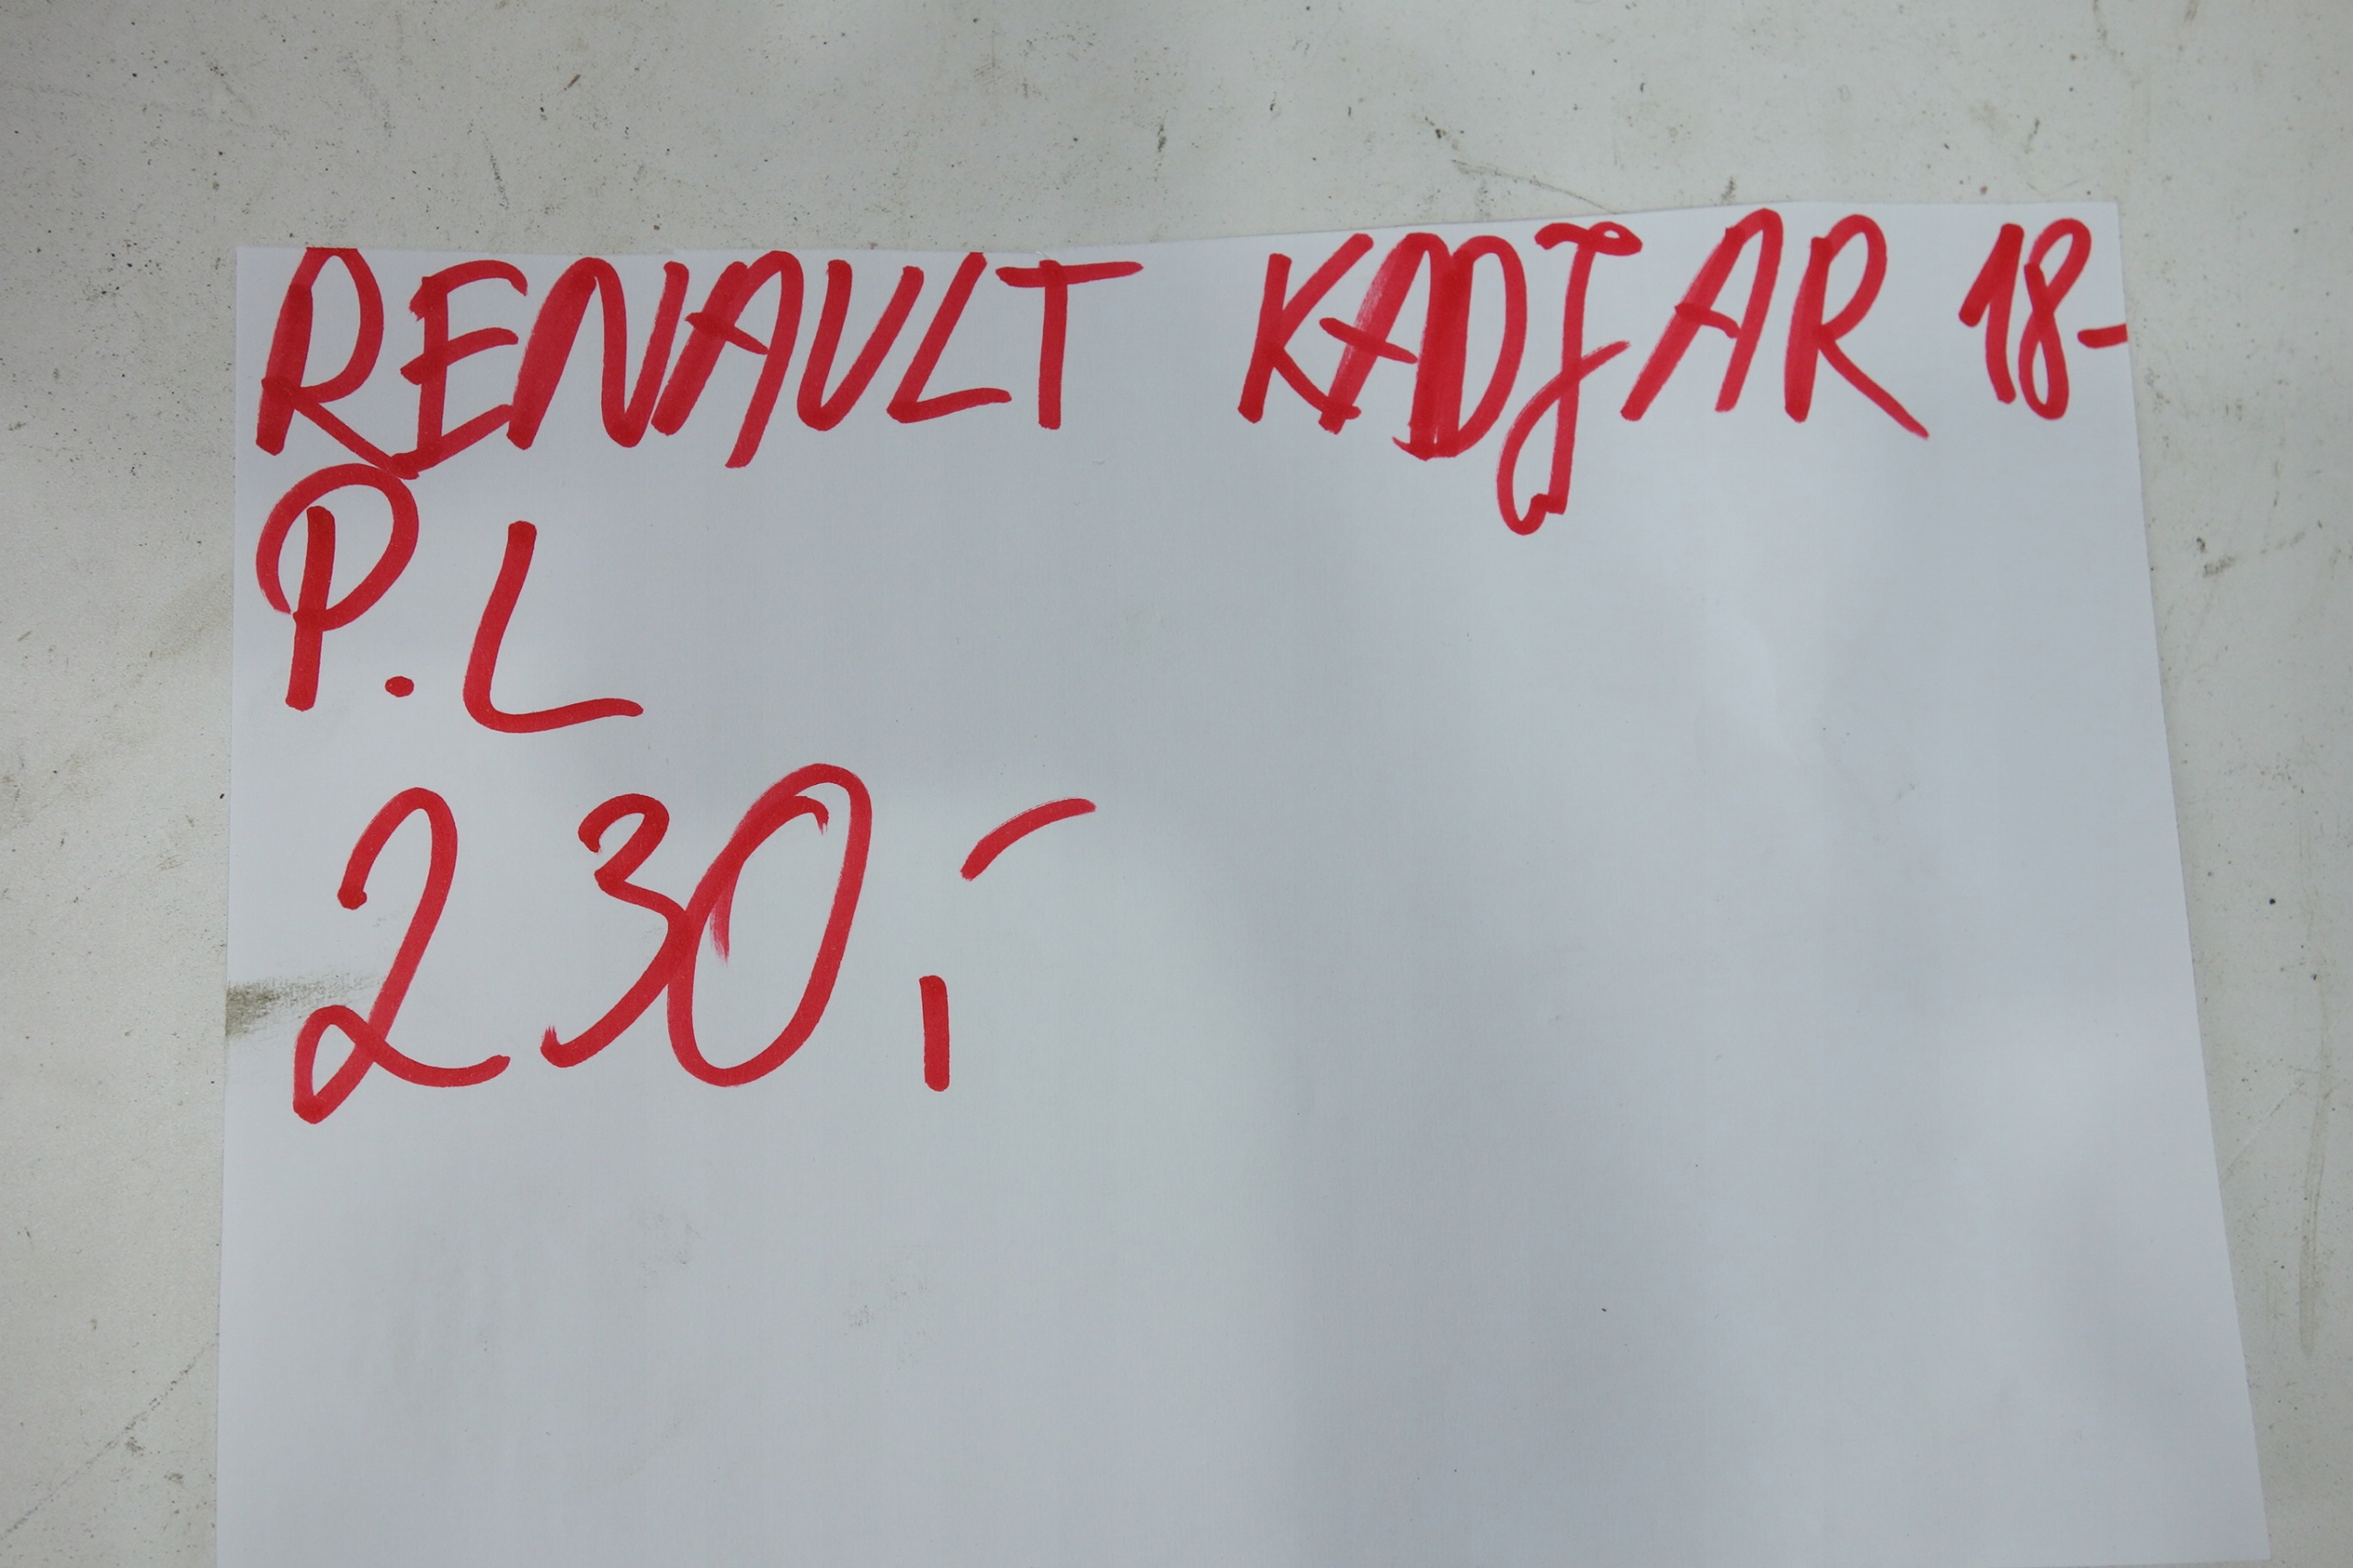 RENAULT KADJAR 18-
P.L
230,-